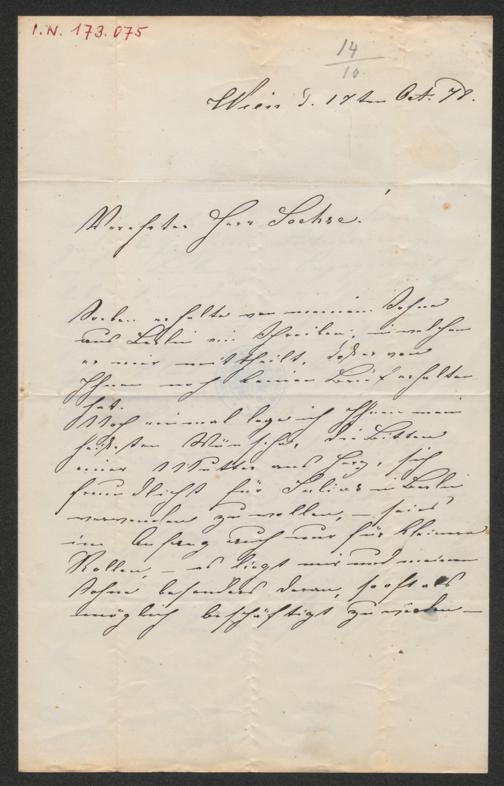 I.N. 173.075
14
10.
Wien d. 17ten Oct. 78.
Verehrter Herr Sachse!
Soeben erhalte von meinem Sohne
aus Berlin ein Schreiben, in welchem
er mir mittheilt, daß er von
Ihnen noch keinen Brief erhalten
hat.
Noch einmal lege ich Ihnen mein
heißesten Wünsche, die Bitten
einer Mutter ans Herz, sich
freundlichst für Julius in Berlin
verwenden zu wollen, – sei's
im Anfang auch nur für kleinere
Rollen, – es liegt mir und meinem
Sohne besonders daran, so oft als
möglich beschäftigt zu werden –